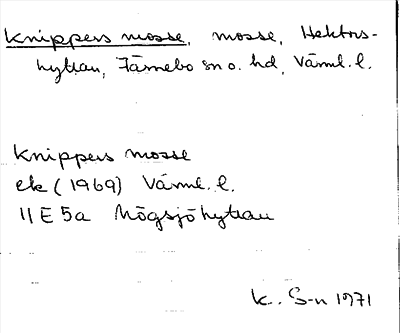 Knippers mosse, mosse, Hektors-
hyttan, Färnebo sn o. hd, Värml. l.
Knippers mosse
ek (1969) Värml. l.
11 E 5a Högsjöhyttan
K. S-n 1971